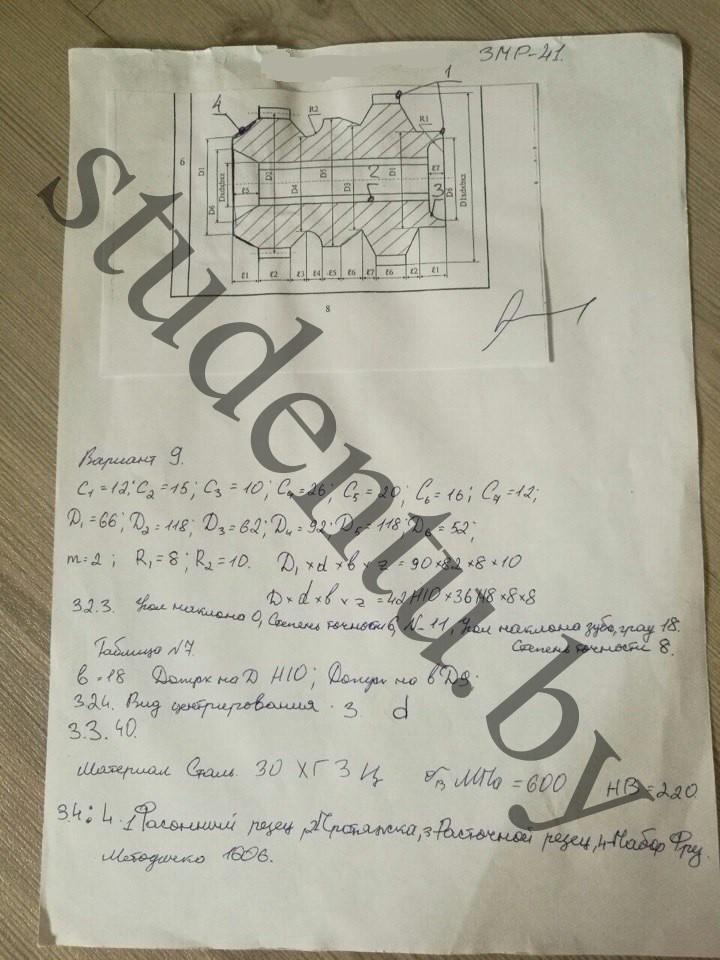 ЗМР-41.
1
4
R2
R1
6
D1
D6
Dxdxbxz
ℓ5
D2
D4
D5
D3
2
D1
ℓ7
3
D6
D1xdxbxz
ℓ1 ℓ2 ℓ3 ℓ4 ℓ5 ℓ6 ℓ7 ℓ6 ℓ2 ℓ1
8
studentu.by
Вариант 9.
C1=12; C2=15; C3=10; C4=26; C5=20; C6=16; C7=12;
D1=66; D2=118; D3=62; D4=92; D5=118; D6=52;
m=2; R1=8; R2=10. D1×d×b×z=90×82×8×10
D×d×b×z=42H10×36
3.2.3. Угол наклона 0, Степень точности 6, N-11, Угол наклона зуба, град 18.
Степень точности 8.
Таблица №7.
b=18 Допуск на D H10; Допуск на b D9.
3.2.4. Вид центрирования 3. d
3.3. 40.
Материал Сталь 30 ХГЗЦ σв МПа=600 HB=220.
3.4: 4. 1 Фасонный резец, 2 Протяжка, 3 Расточной резец, 4 Набор Фрез.
Методичка 1606.